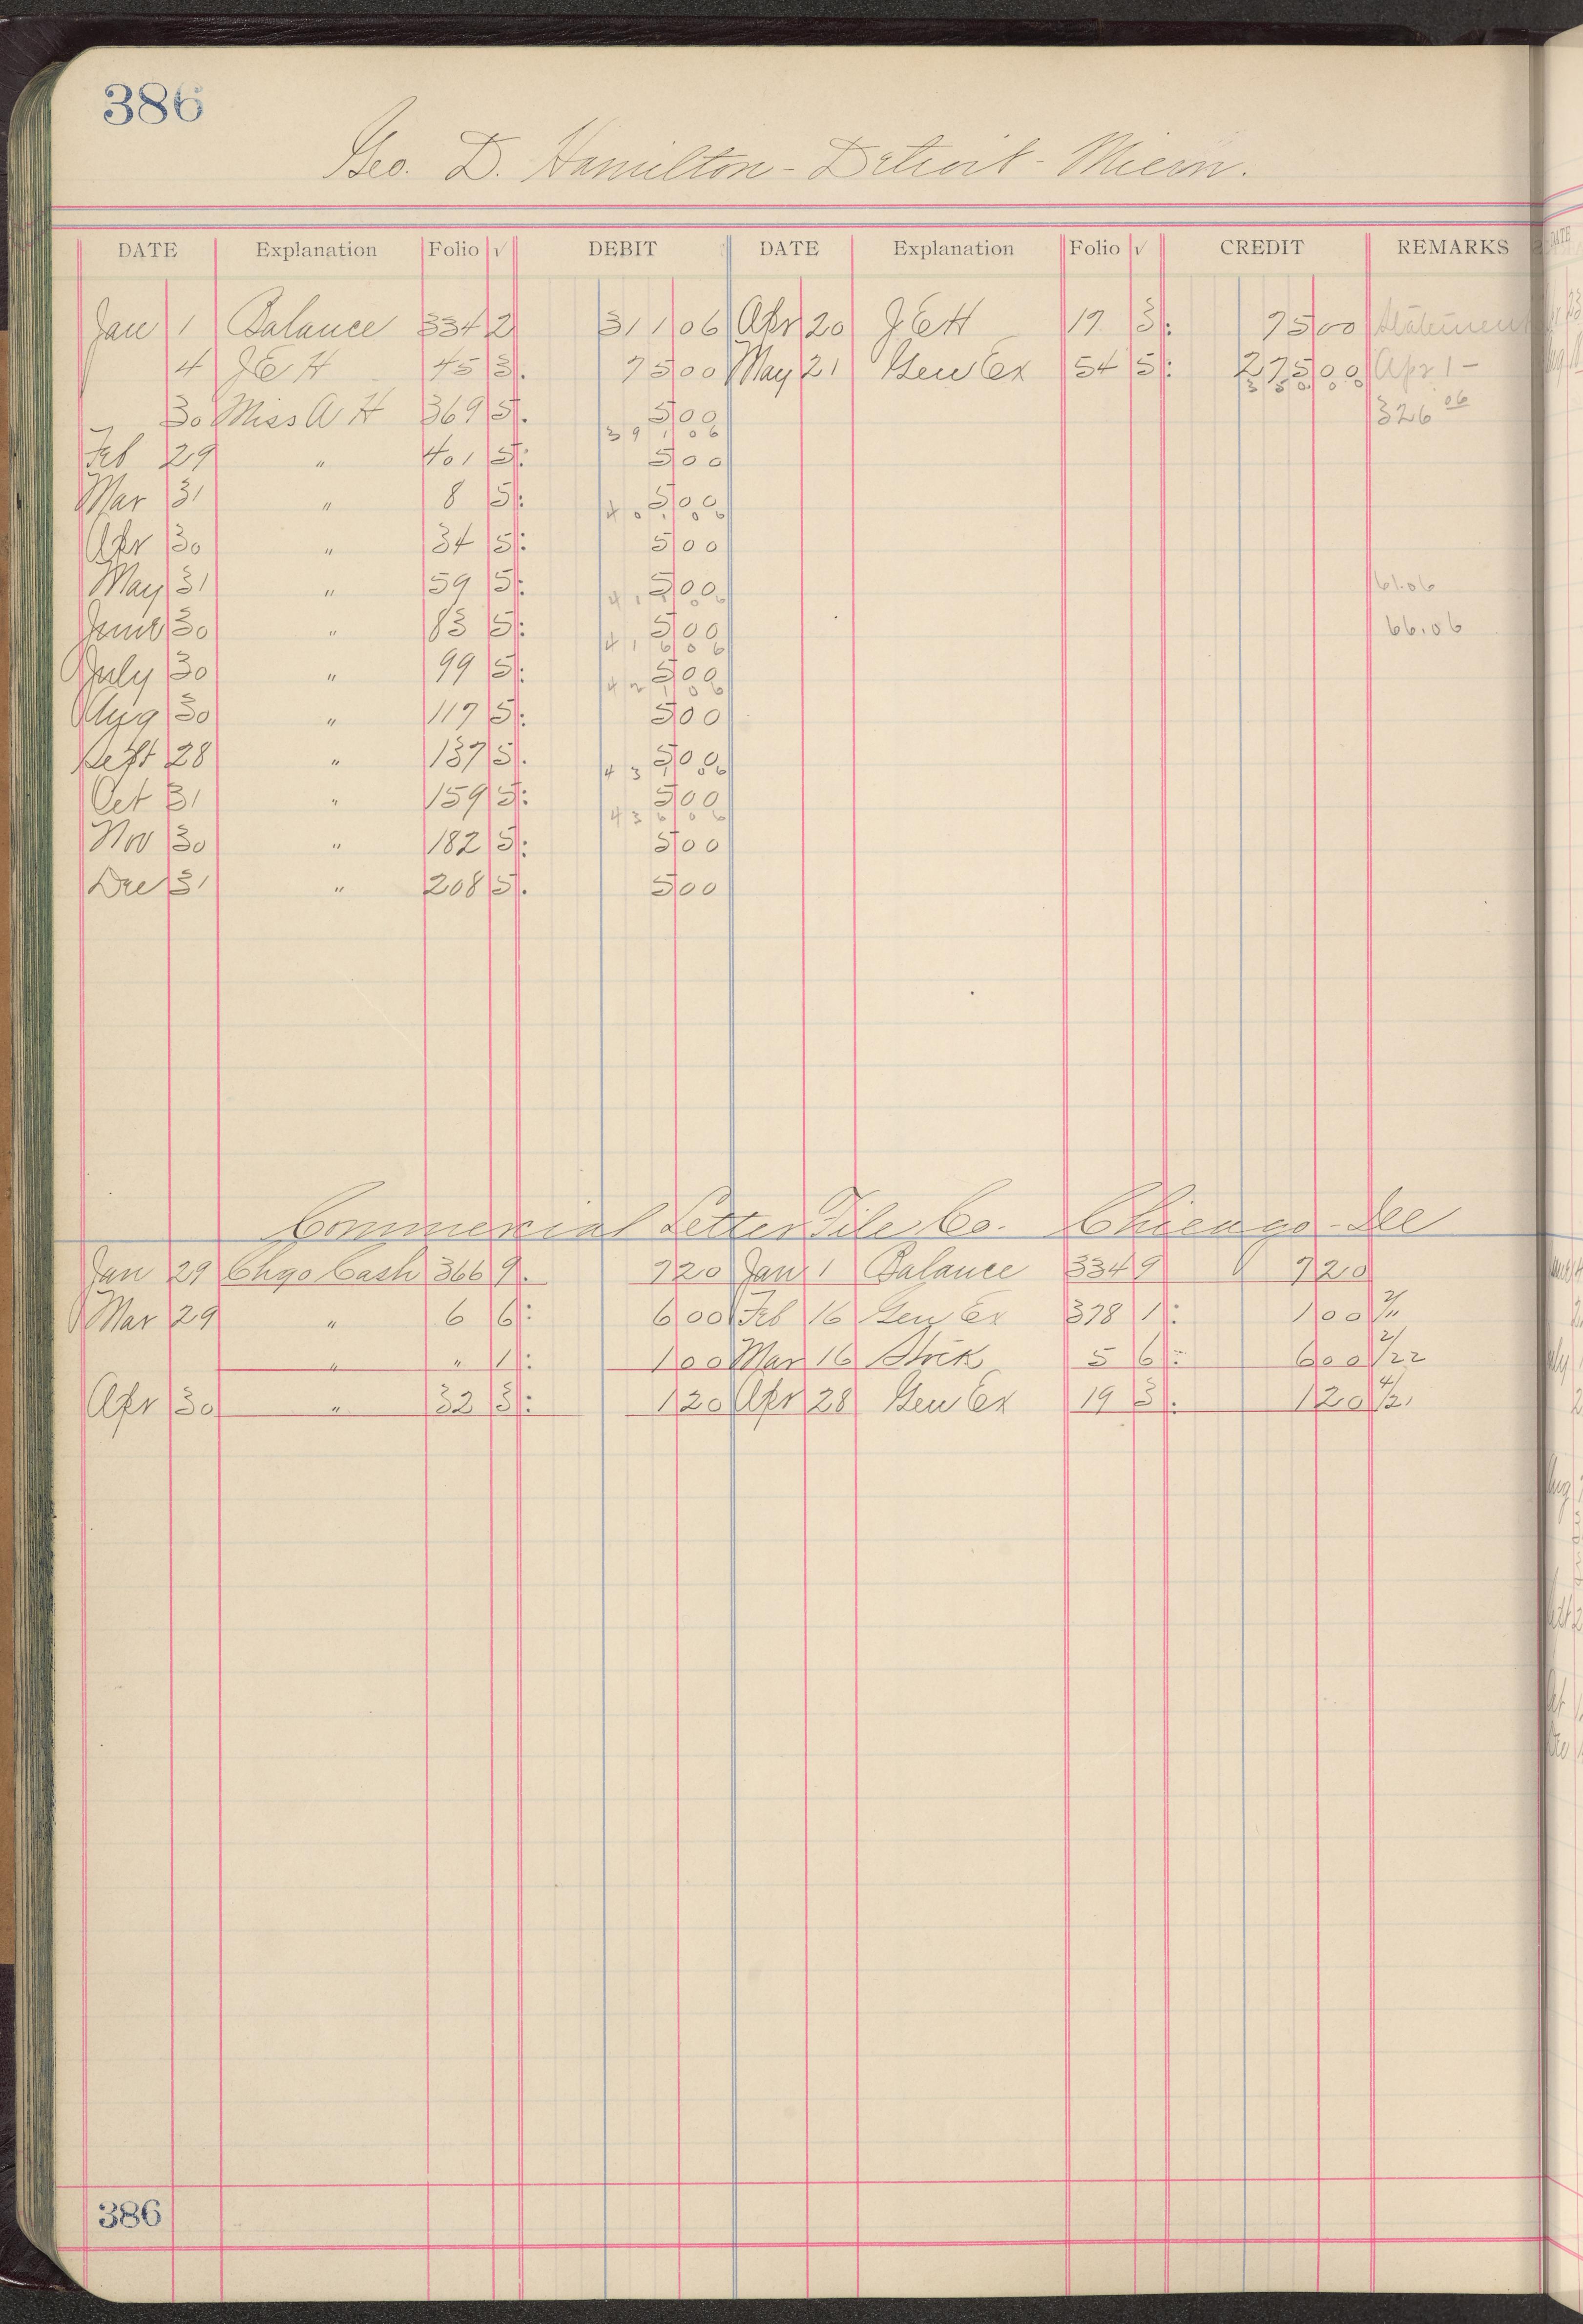 386
Geo. D. Hamilton - Detroit - Micm.
DATE Explanation Folio √ DEBIT DATE Explanation Folio √ CREDIT REMARKS
Jan 1 Balance 334 2 311 06 Apr 20 J E H 17 3: 75 00 Statement
4 J E H 45 3. 75 00 May 21 Gen Ex 54 5: 275 00 Apr 1 -
350 00
30 Miss A H 369 5. 5 00 326 06
391 06
Feb 29 " 401 5: 5 00
Mar 31 " 8 5: 5 00
401 06
Apr 30 " 34 5: 5 00
May 31 " 59 5: 5 00 61.06
411 06
June 30 " 83 5: 5 00 66.06
416 06
July 30 " 99 5: 5 00
421 06
Aug 30 " 117 5: 5 00
Sept 28 " 137 5. 5 00
431 06
Oct 31 " 159 5: 5 00
436 06
Nov 30 " 182 5: 5 00
Dec 31 " 208 5. 5 00
Commercial Letter File Co. Chicago - Ill
Jan 29 Chgo Cash 366 9. 7 20 Jan 1 Balance 334 9 7 20
Mar 29 " 6 6: 6 00 Feb 16 Gen Ex 378 1: 1 00 2/11
" " 1: 1 00 Mar 16 Stock 5 6: 6 00 2/22
Apr 30 " 32 3: 1 20 Apr 28 Gen Ex 19 3. 1 20 4/21
386